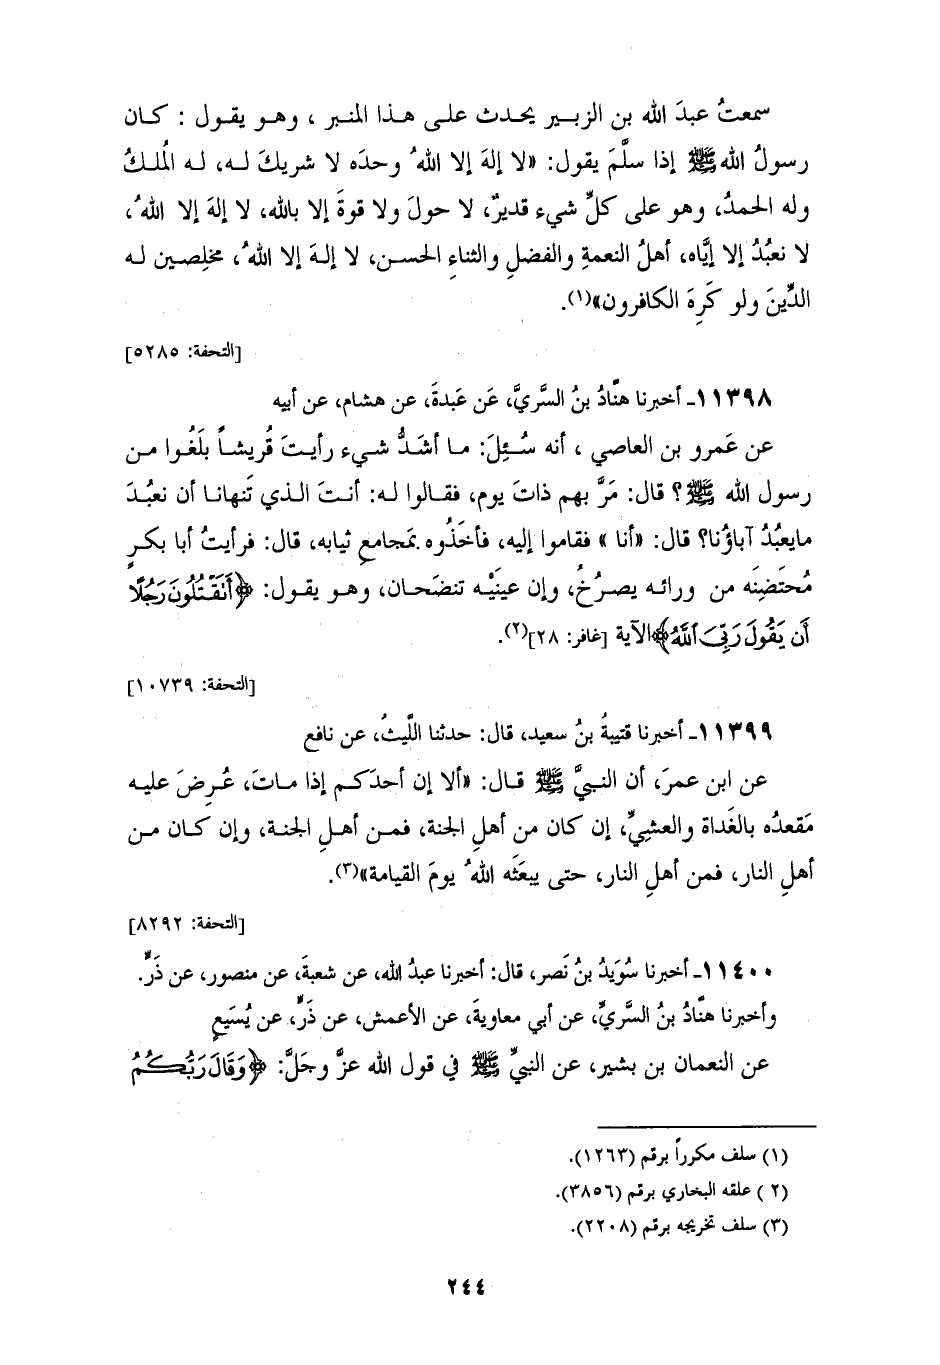 سمعتُ عبدَ الله بن الزبير يحدث على هذا المنبر ، وهو يقول : كان
رسولُ الله ﷺ إذا سلَّمَ يقول: «لا إلهَ إلا اللهُ وحدَه لا شريكَ له، له المُلكُ
وله الحمدُ، وهو على كلِّ شيء قديرٌ، لا حولَ ولا قوةَ إلا بالله، لا إلهَ إلا اللهُ،
لا نعبُدُ إلا إيَّاه، أهلُ النعمةِ والفضلِ والثناءِ الحسن، لا إلهَ إلا اللهُ، مخلِصين له
الدِّينَ ولو كَرِهَ الكافرون»(١).
[التحفة: ٥٢٨٥]
١١٣٩٨ـ أخبرنا هنَّادُ بنُ السَّريِّ، عَن عَبدةَ، عن هشام، عن أبيه
عن عَمرو بن العاصي ، أنه سُئِلَ: ما أشدُّ شيء رأيتَ قُريشاً بلَغُوا من
رسول الله ﷺ؟ قال: مَرَّ بهم ذاتَ يوم، فقالوا له: أنتَ الذي تَنهانا أن نعبُدَ
مايعبُدُ آباؤنا؟ قال: «أنا » فقاموا إليه، فأخَذُوه بمَجامعِ ثيابه، قال: فرأيتُ أبا بكرٍ
مُحتَضِنَه من ورائه يصرُخُ، وإن عينَيْه تنضَحان، وهو يقول: ﴿أَتَقۡتُلُونَ رَجُلًا
أَن يَقُولَ رَبِّىَ ٱللَّهُ﴾الآية [غافر: ٢٨](٢).
[التحفة: ١٠٧٣٩]
١١٣٩٩ـ أخبرنا قتيبةُ بنُ سعيد، قال: حدثنا اللَّيثُ، عن نافع
عن ابن عمرَ، أن النبيَّ ﷺ قال: «ألا إن أحدَكم إذا ماتَ، عُرِضَ عليه
مَقعدُه بالغَداة والعشِيِّ، إن كان من أهلِ الجنة، فمن أهلِ الجنة، وإن كان من
أهلِ النار، فمن أهلِ النار، حتى يبعَثَه اللهُ يومَ القيامة»(٣).
[التحفة: ٨٢٩٢]
١١٤٠٠ـ أخبرنا سُوَيدُ بنُ نَصر، قال: أخبرنا عبدُ الله، عن شعبةَ، عن منصور، عن ذَرٍّ.
وأخبرنا هنَّادُ بنُ السَّريِّ، عن أبي معاويةَ، عن الأعمش، عن ذَرٍّ، عن يُسَيعٍ
عن النعمان بن بشير، عن النبيِّ ﷺ في قول الله عزَّ وجَلَّ: ﴿وَقَالَ رَبُّكُمُ
(١) سلف مكرراً برقم (١٢٦٣).
(٢ ) علقه البخاري برقم (٣٨٥٦).
(٣) سلف تخريجه برقم (٢٢٠٨).
٢٤٤